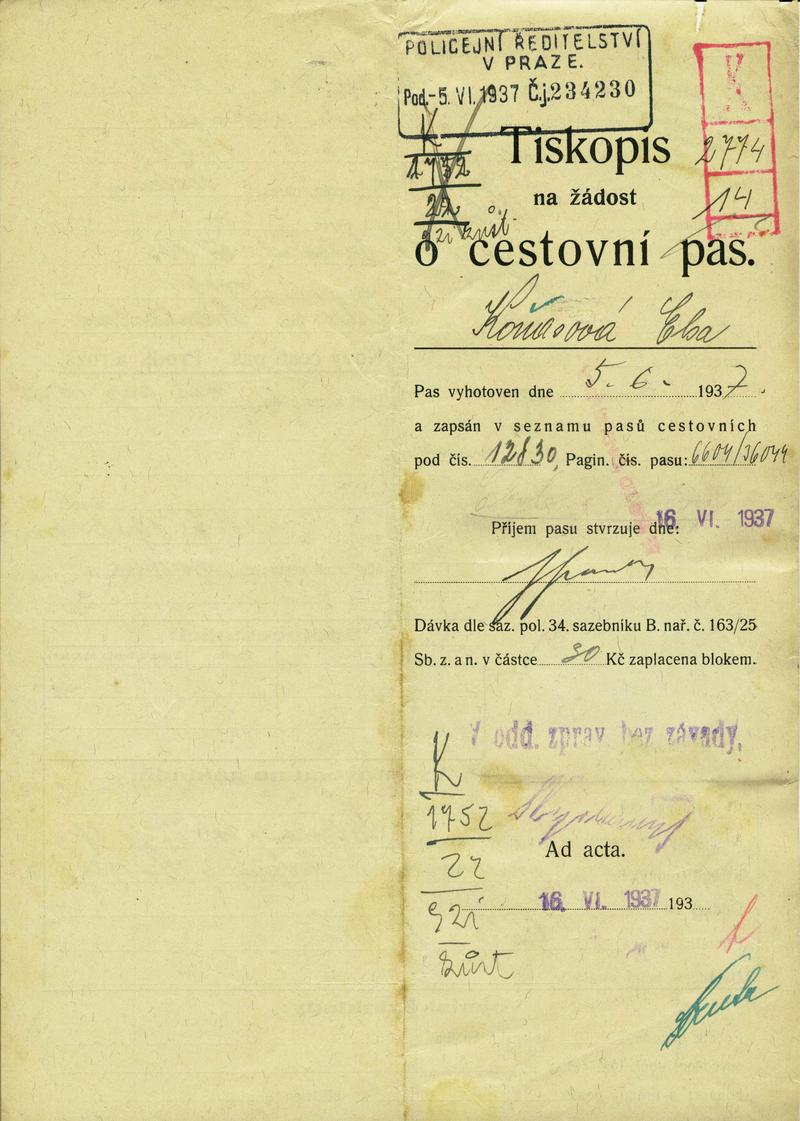 POLICEJNÍ ŘEDITELSTVÍ
V PRAZE.
Pod. -5. VI. 1937 Č.j. 234230
K
1752
22
Tiskopis
2774
14
na žádost
o cestovní pas.
Elsa
Pas vyhotoven dne 5. 6. 1937.
a zapsán v seznamu pasů cestovních
pod čís. 12830, Pagin. čis. pasu: 6604/36044
Příjem pasu stvrzuje dne: 16. VI. 1937
Dávka dle saz. pol. 34. sazebníku B. nař. č. 163/25
Sb. z. a n. v částce 30 Kč zaplacena blokem.
V odd. zprav. bez závady.
K
1752
22
Ad acta.
16. VI. 1937 193